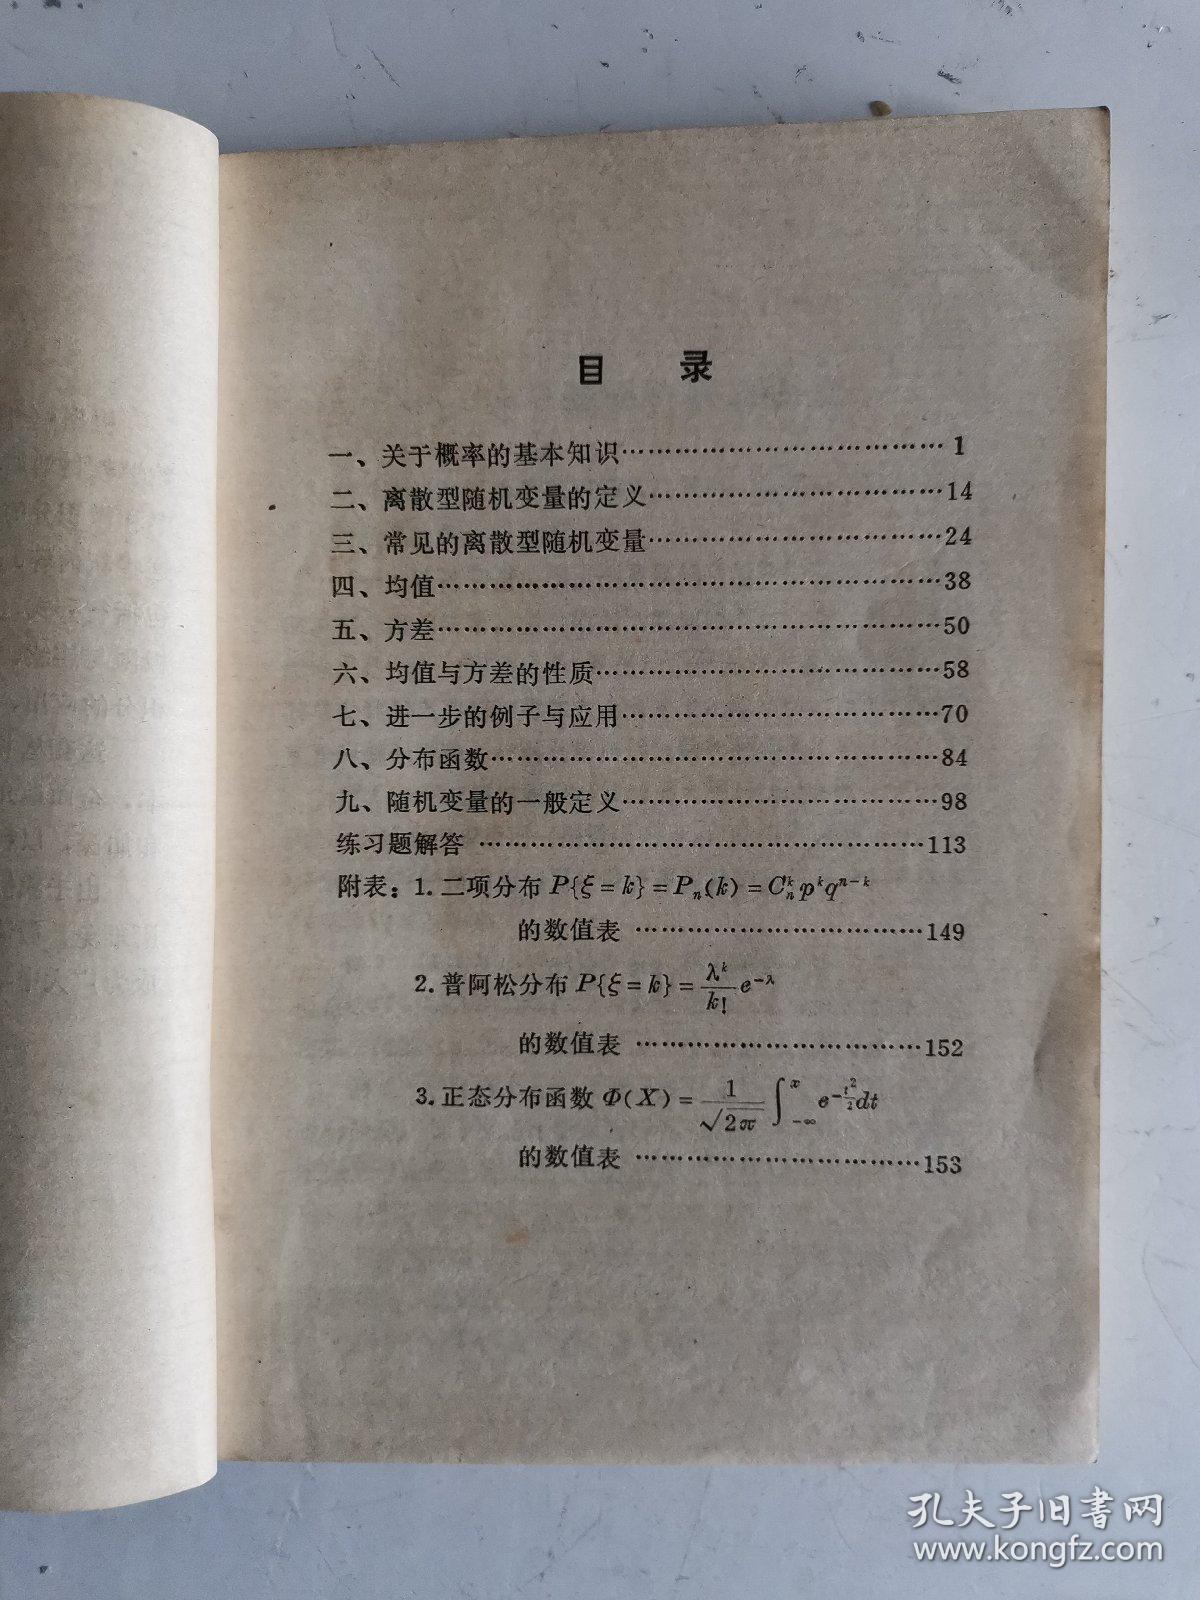 目 录
一、关于概率的基本知识………………………………1
二、离散型随机变量的定义……………………………14
三、常见的离散型随机变量……………………………24
四、均值…………………………………………………38
五、方差…………………………………………………50
六、均值与方差的性质…………………………………58
七、进一步的例子与应用………………………………70
八、分布函数……………………………………………84
九、随机变量的一般定义………………………………98
练习题解答 ……………………………………………113
附表：1.二项分布 P{ξ=k}=Pₙ(k)=Cₙᵏpᵏqⁿ⁻ᵏ
的数值表 ……………………………149
2.普阿松分布 P{ξ=k}=λᵏ/k! e^{-λ}
的数值表 ……………………………152
3.正态分布函数 Φ(X)=1/√2π ∫_{-∞}^{x} e^{-t²/2}dt
的数值表 ……………………………153
孔夫子旧书网
www.kongfz.com